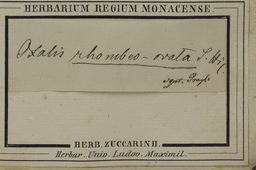 HERBARIUM REGIUM MONACENSE.
Oxalis rhombeo-ovata S. Hil.
HERB. ZUCCARINII.
Herbar. Univ. Ludov. Maximil.